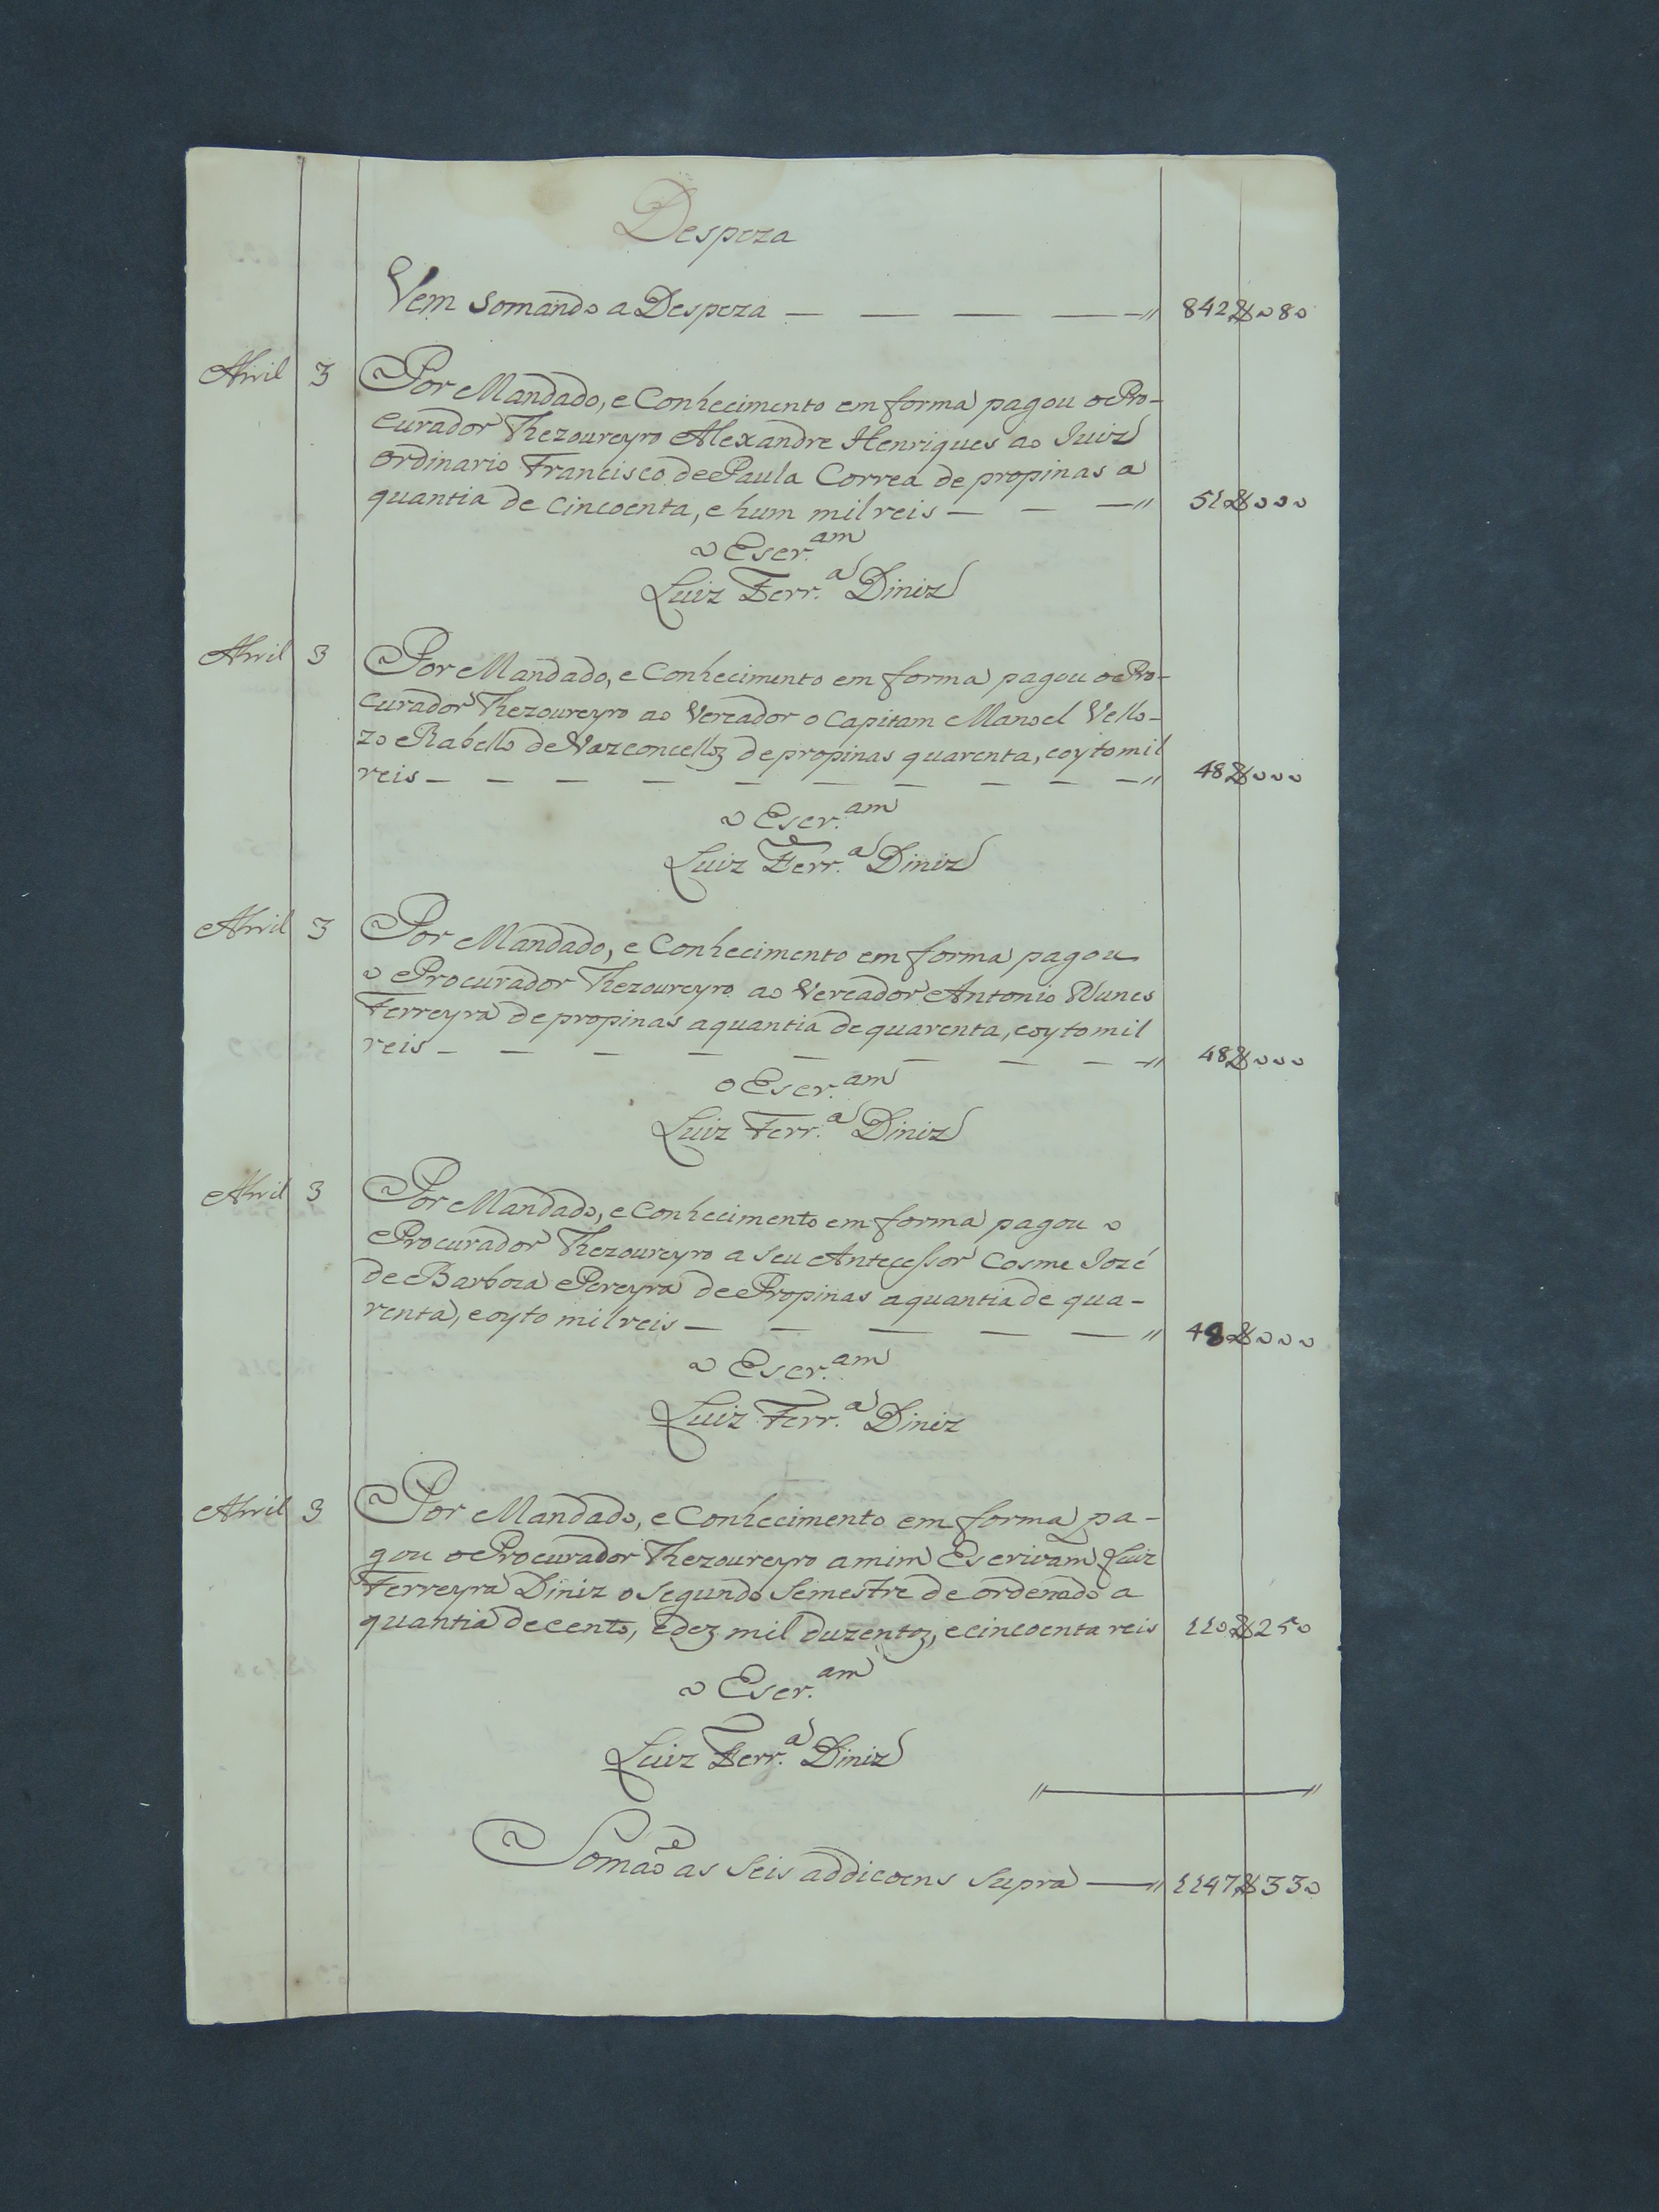 Despeza
Vem somando a Despeza — — — —" 842$080
Abril 3 Por Mandado, e Conhecimento em forma pagou o Pro-
curador Thezoureyro Alexandre Henriques ao Juiz
ordinario Francisco de Paula Correa de propinas a
quantia de cincoenta, e hum mil reis — — —" 51$000
o Escr.am
Luiz Ferr.a Diniz
Abril 3 Por Mandado, e Conhecimento em forma pagou o Pro-
curador Thezoureyro ao Vereador o Capitam Manoel Vello-
zo Rabello de Vazconcellos de propinas quarenta, e oyto mil
reis — — — — — — — — —" 48$000
o Escr.am
Luiz Ferr.a Diniz
Abril 3 Por Mandado, e Conhecimento em forma pagou
o Procurador Thezoureyro ao Vereador Antonio Nunes
Ferreyra de propinas a quantia de quarenta, e oyto mil
reis — — — — — — — —" 48$000
o Escr.am
Luiz Ferr.a Diniz
Abril 3 Por Mandado, e Conhecimento em forma pagou o
Procurador Thezoureyro a seu Antecessor Cosme Jozé
de Barboza Pereyra de Propinas a quantia de qua-
renta, e oyto mil reis — — — — —" 48$000
o Escr.am
Luiz Ferr.a Diniz
Abril 3 Por Mandado, e Conhecimento em forma pa-
gou o Procurador Thezoureyro a mim Escrivam Luiz
Ferreyra Diniz o segundo semestre de ordenado a
quantia de cento, e dez mil duzentos, e cincoenta reis 110$250
o Escr.am
Luiz Ferr.a Diniz
Somão as seis addicoens supra —" 1147$330